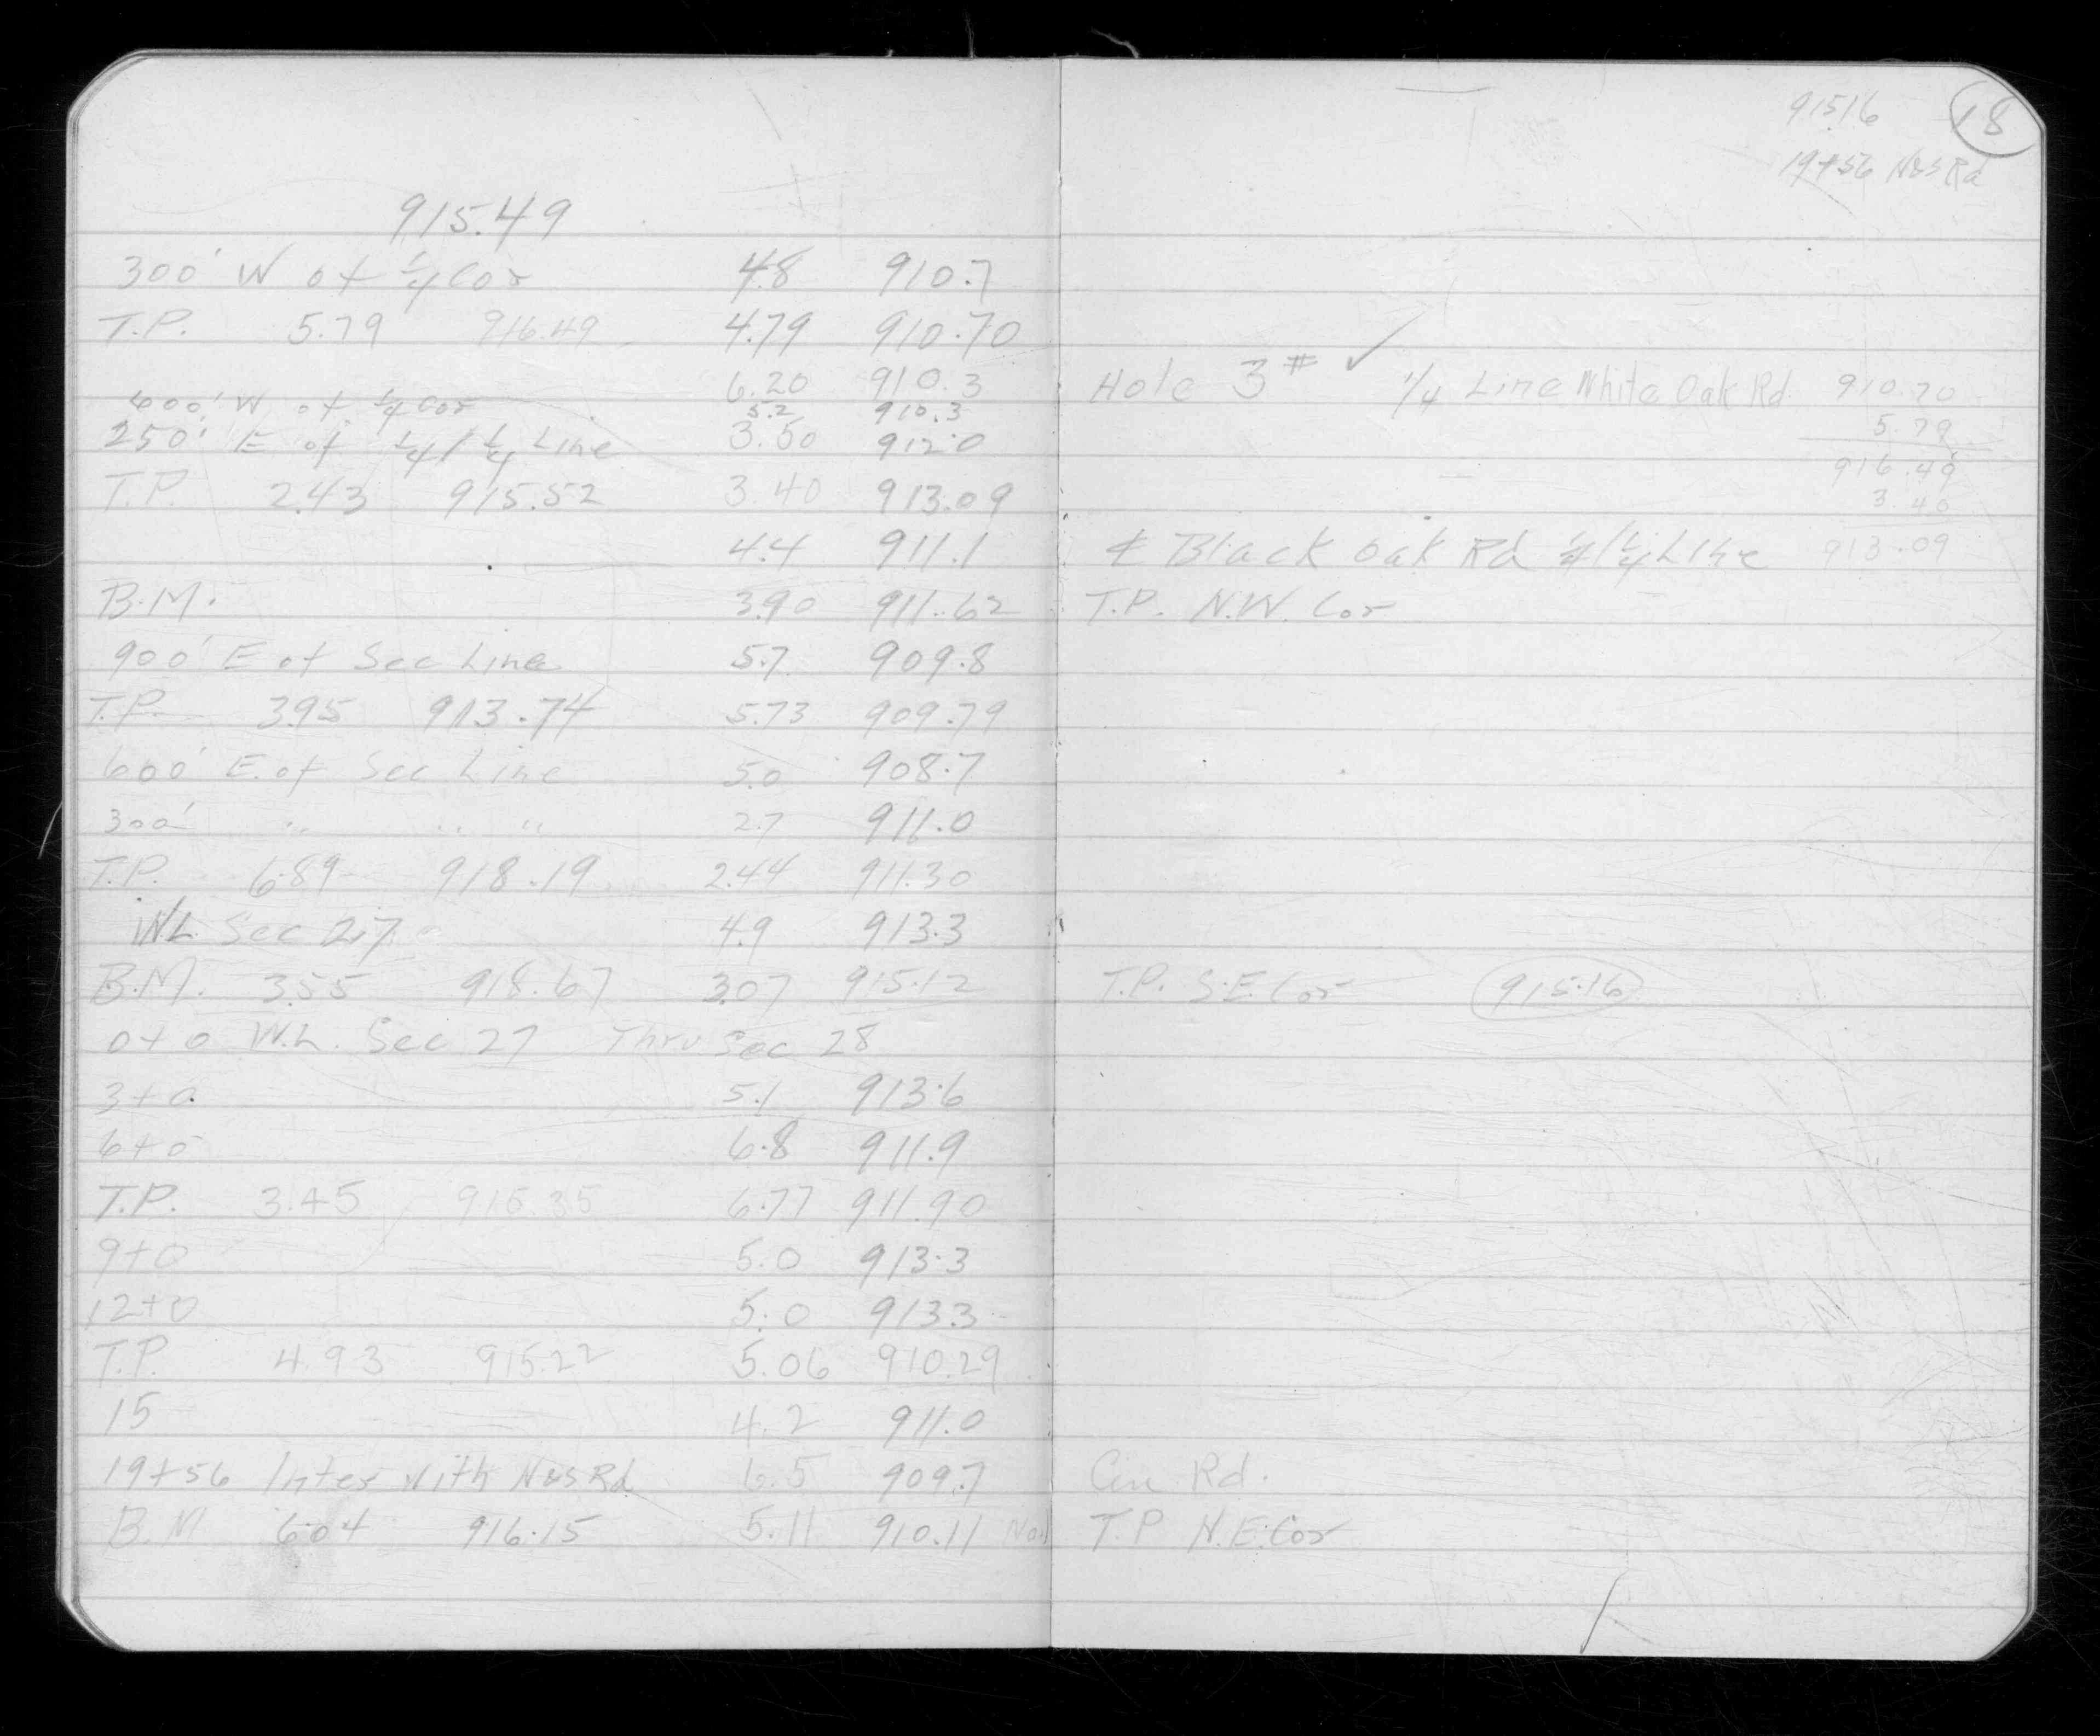 915.49
300' W of 1/4 Cor 4.8 910.7
T.P. 5.79 916.49 4.79 910.70
6.20 910.3
400' W. of 1/4 cor 5.2 910.3
250' E of 1/4 1/4 Line 3.50 912.0
T.P. 2.43 915.52 3.40 913.09
4.4 911.1
B.M. 3.90 911.62
900' E of Sec Line 5.7 909.8
T.P. 3.95 913.74 5.73 909.79
600' E. of Sec Line 5.0 908.7
300' " " " 2.7 911.0
T.P. 6.89 918.19 2.44 911.30
W.L. Sec 27 4.9 913.3
B.M. 3.55 918.67 3.07 915.12
0+0 W.L. Sec 27 Thru Sec 28
3+0 5.1 913.6
6+0 6.8 911.9
T.P. 3.45 915.35 6.77 911.90
9+0 5.0 913.3
12+0 5.0 913.3
T.P. 4.93 915.22 5.06 910.29
15 4.2 911.0
19+56 Inter with N&S Rd 6.5 909.7
B.M 6.04 916.15 5.11 910.11 Nail
915.16 18
19+56 N&S Rd
Hole 3# ✓ 1/4 Line White Oak Rd. 910.70
5.79
916.49
3.40
℄ Black Oak Rd 1/4 1/4 Line 913.09
T.P. N.W. Cor
T.P. S.E. Cor 915.16
Rd.
T.P N.E. Cor